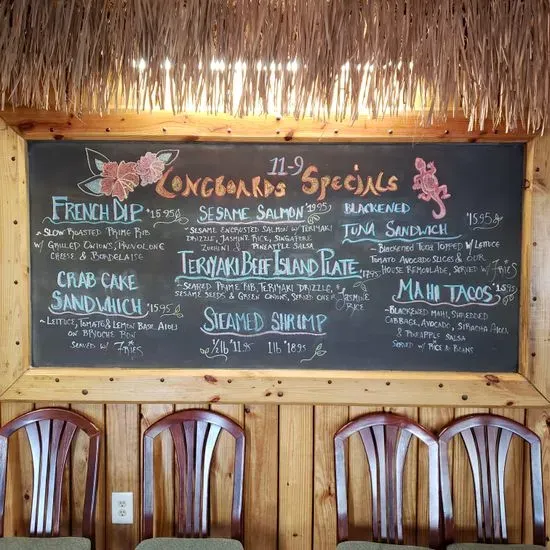 11-9
Longboards Specials
French Dip $15.95
~ Slow Roasted Prime Rib
w/ Grilled Onions, Provolone
Cheese & Bordelaise
Crab Cake
Sandwhich $15.95
~ Lettuce, Tomato & Lemon Basil Aioli
on Brioche Bun
Served w/ Fries
Sesame Salmon $19.95
~ Sesame Encrusted Salmon w/ Teriyaki
Drizzle, Jasmine Rice, Singapore
Zucchini & Pineapple Salsa
Teriyaki Beef Island Plate $17.95
~ Seared Prime Rib, Teriyaki Drizzle,
Sesame Seeds & Green Onions, Served over Jasmine
Rice
Steamed Shrimp
1/2 lb $11.95 1 lb $18.95
Blackened
Tuna Sandwich $15.95
~ Blackened Tuna Topped w/ Lettuce
Tomato Avocado Slices & our
House Remoulade, Served w/ Fries
Mahi Tacos $16.95
~ Blackened Mahi, Shredded
Cabbage, Avocado, Sriracha Aioli
& Pineapple Salsa
Served w/ Rice & Beans